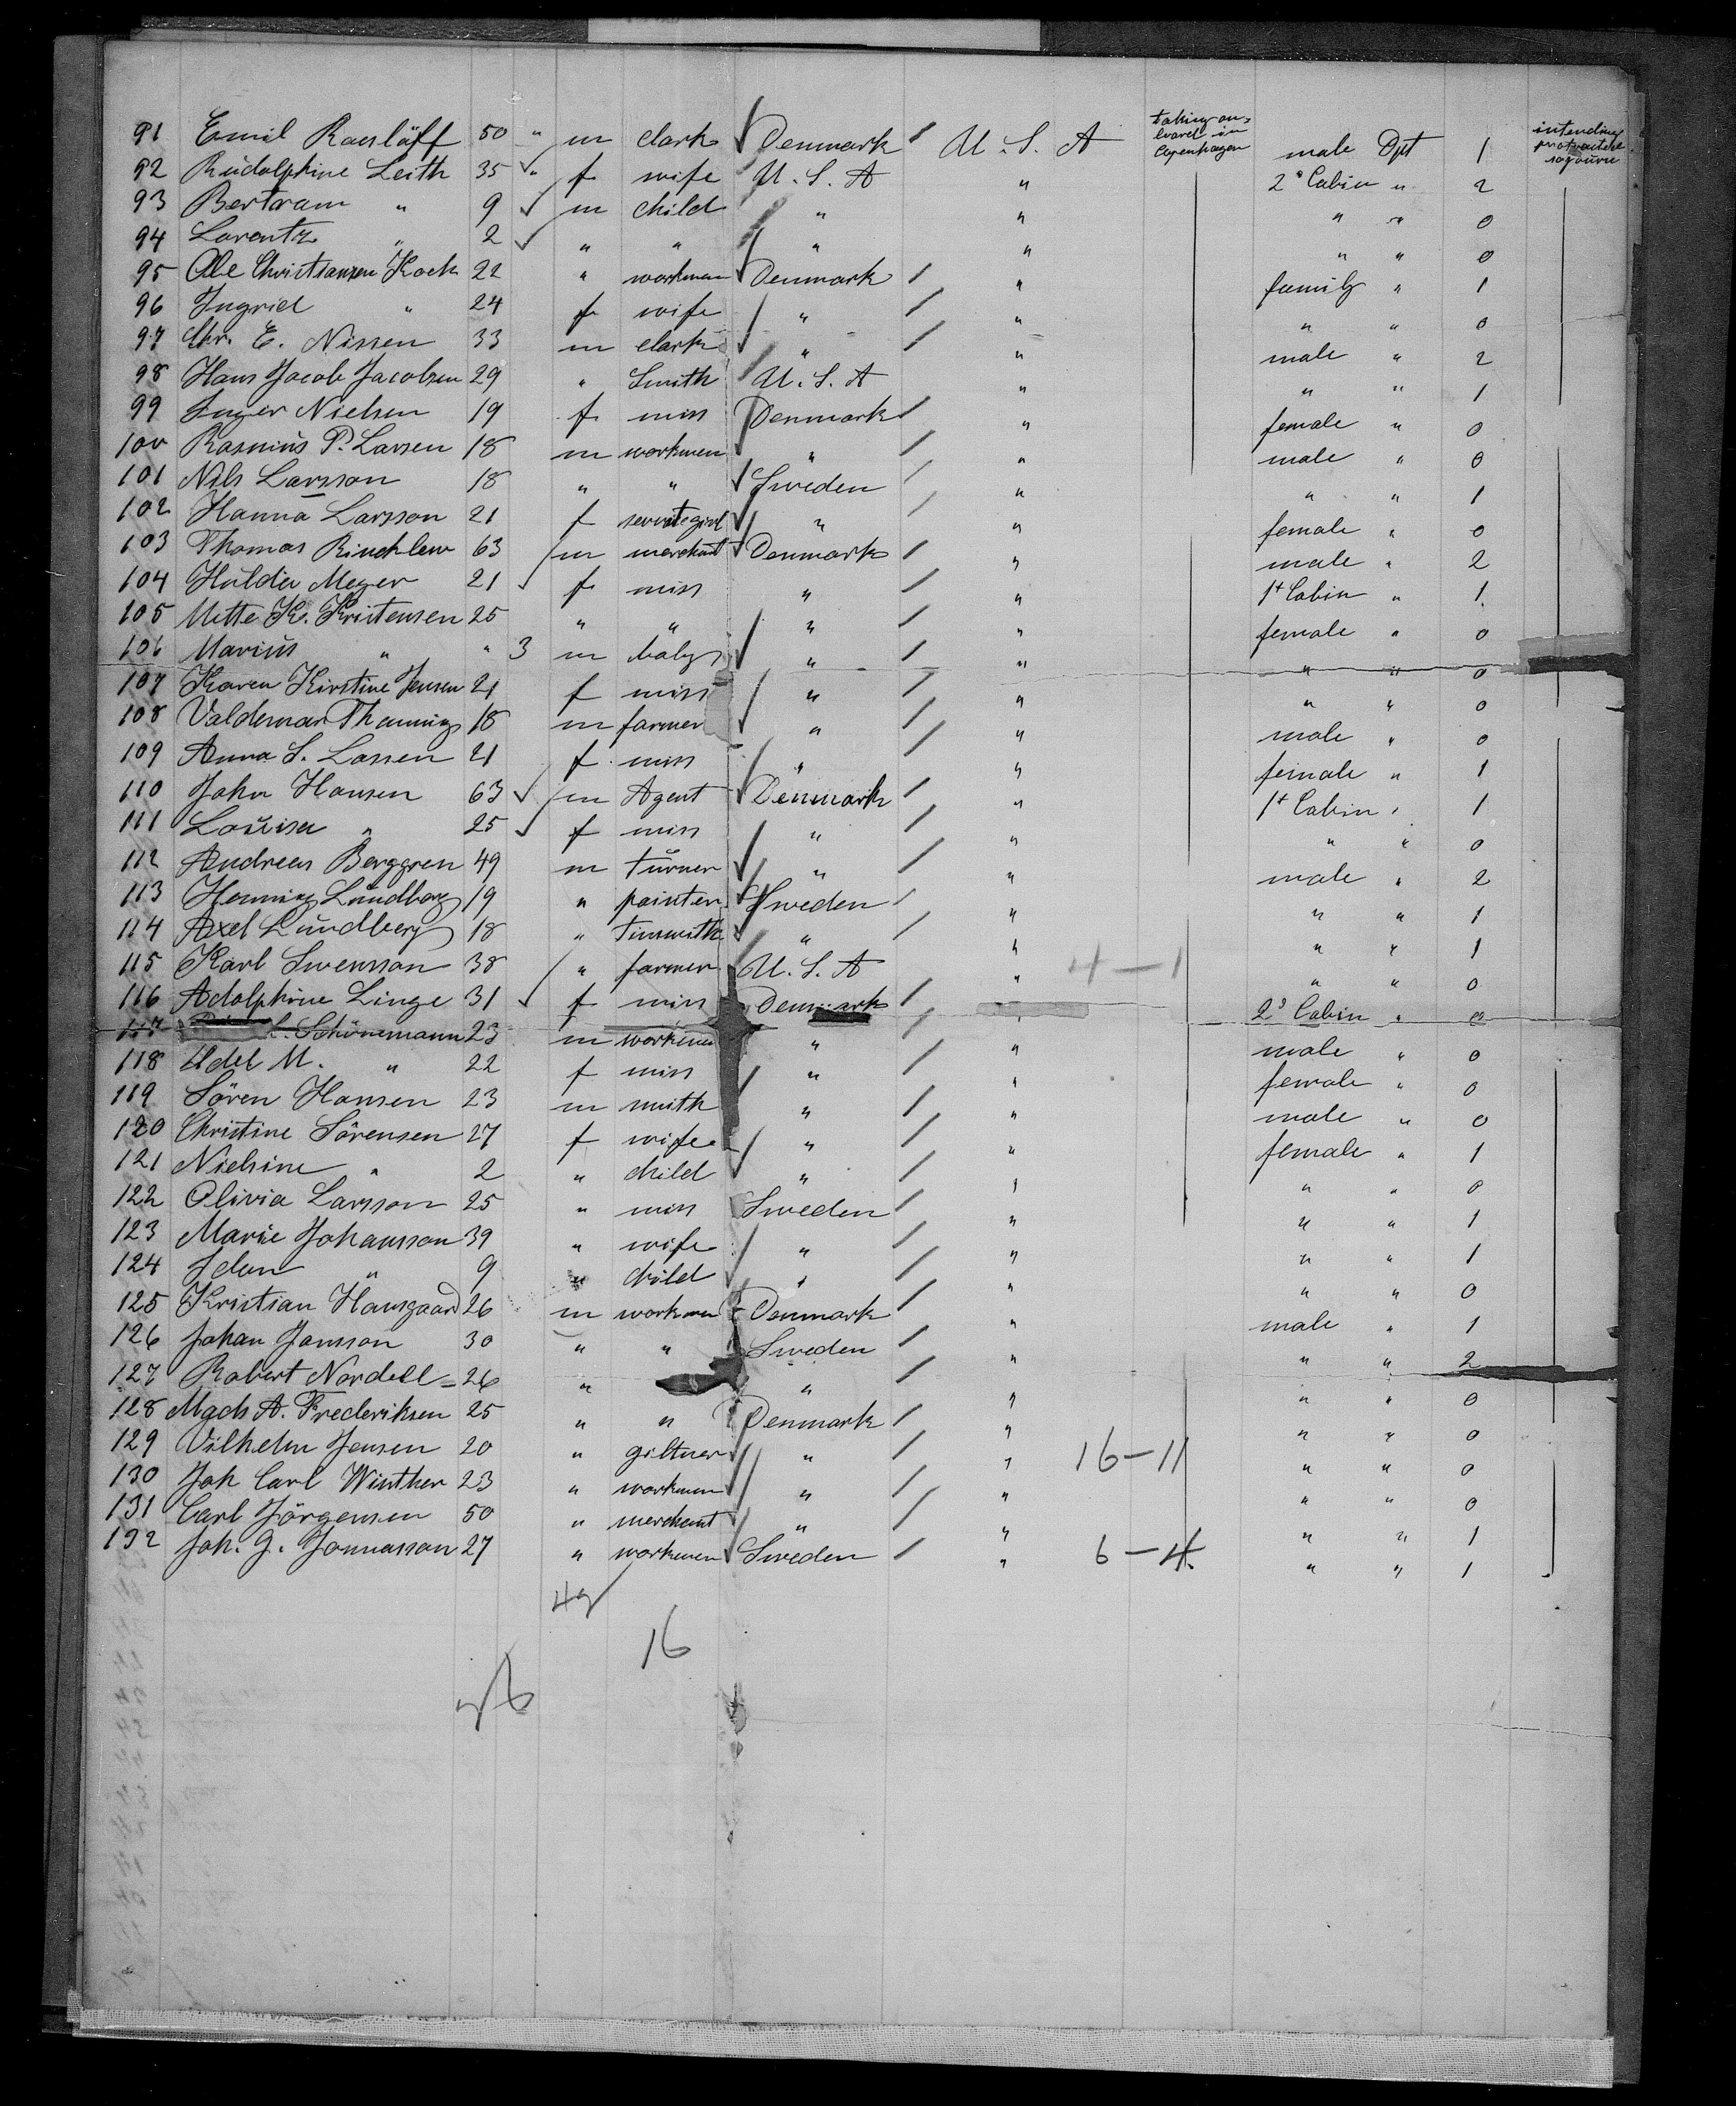 91 Emil Raasläff 50 " m clark Denmark U. S. A taking on-board in Copenhagen male Dpt 1 intending protracted sojourn
92 Rudolphine Leith 35 " f wife U. S. A " 2d Cabin " 2
93 Bertram " 9 m child " " " " 0
94 Lorentz " 2 " " " " " " 0
95 Ole Christiansen Koch 22 " workman Denmark " family " 1
96 Ingrid " 24 f wife " " " " 0
97 Chr. E. Nissen 33 m clark " " male " 2
98 Hans Jacob Jacobsen 29 " Smith U. S. A " " " 1
99 Inger Nielsen 19 f miss Denmark " female " 0
100 Rasmus P. Larsen 18 m workmen " " male " 0
101 Nils Larsson 18 " " Sweden " " " 1
102 Hanna Larsson 21 f girl " " female " 0
103 Thomas 63 m merchant Denmark " male " 2
104 Hulda Meyer 21 f miss " " 1t Cabin " 1
105 Mette K. Kristensen 25 " " " " female " 0
106 Marius " " 3 m baby " " " " 0
107 Karen Kirstine Jensen 21 f miss " " " " 0
108 Valdemar Thenning 18 m farmer " " male " 0
109 Anna S. Lassen 21 f miss " " female " 1
110 John Hansen 63 m Agent Denmark " 1t Cabin " 1
111 Louisa " 25 f miss " " " " 0
112 Andreas Berggren 49 m turner " " male " 2
113 Henning Lundberg 19 " painter Sweden " " " 1
114 Axel Lundberg 18 " tinsmith " " " " 1
115 Karl Swensson 38 " farmer U. S. A " 4-1 " " 0
116 Adolphine Linge 31 f miss Denmark " 2d Cabin " 0
117 Schönemann 23 m workmen " " male " 0
118 Adel M. " 22 f miss " " female " 0
119 Sören Hansen 23 m smith " " male " 0
120 Christine Sörensen 27 f wife " " female " 1
121 Nielsine " 2 " child " " " " 0
122 Olivia Larsson 25 " miss Sweden " " " 1
123 Marie Johansson 39 " wife " " " " 1
124 " 9 " child " " " " 0
125 Kristian Hansgaard 26 m workmen Denmark " male " 1
126 Johan Jansson 30 " " Sweden " " " 2
127 Robert Nordell 26 " " " " " 0
128 Mads A. Frederiksen 25 " " Denmark " " " 0
129 Vilhelm Jensen 20 " giltner " " 16-11 " " 0
130 Joh Carl Winther 23 " workmen " " " " 0
131 Carl Jörgensen 50 " merchant " " " " 1
132 Joh. G. Jonnasson 27 " workmen Sweden " 6-4 " " 1
16